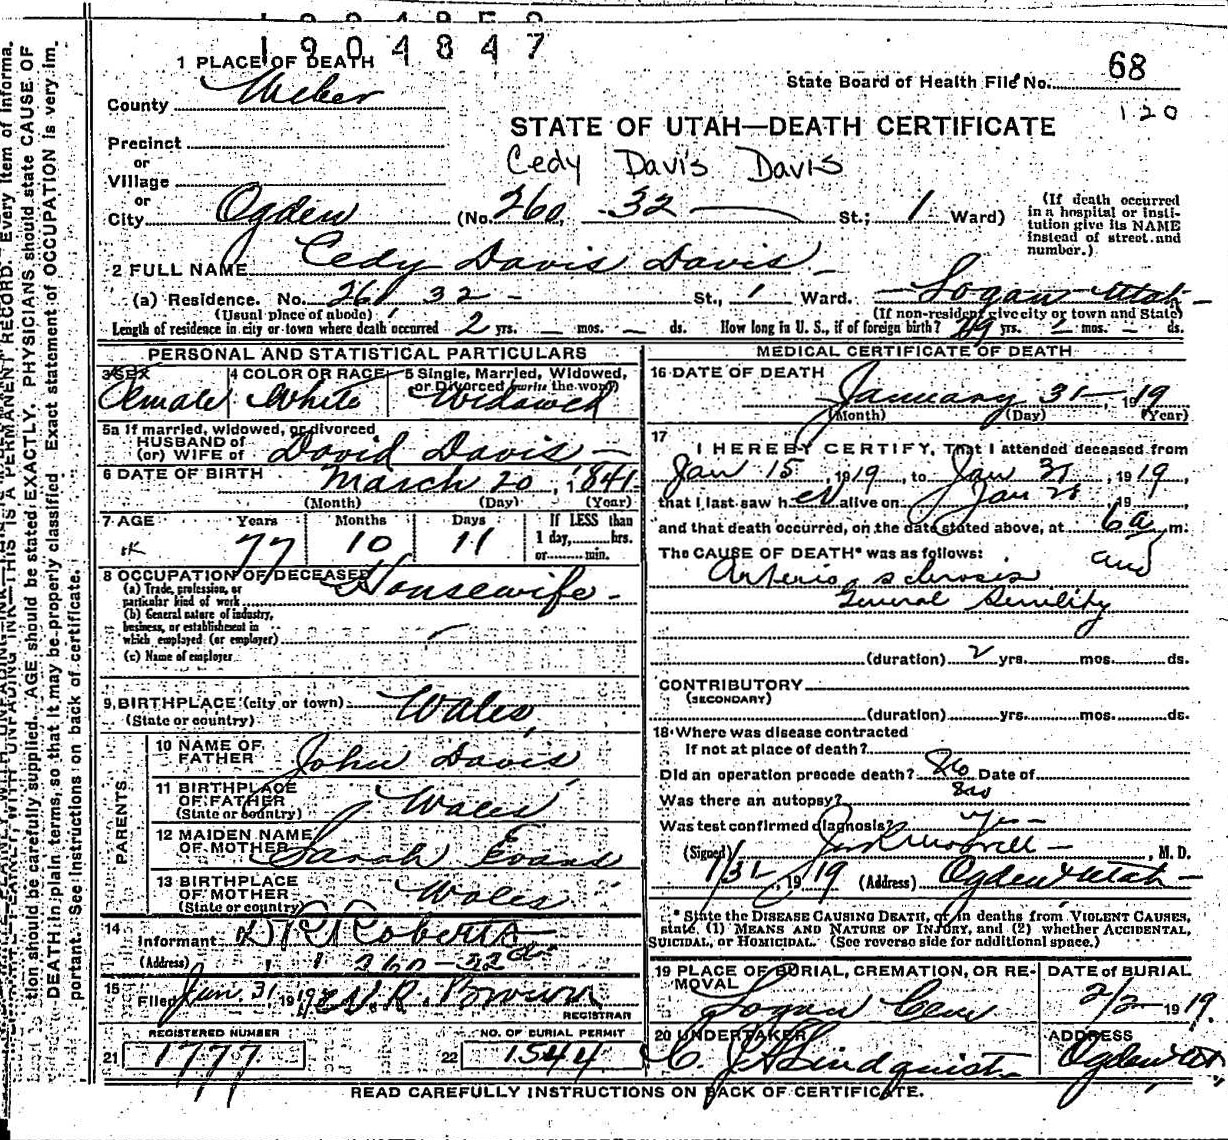 1904847
1 PLACE OF DEATH
County Weber
State Board of Health File No. 68
120
STATE OF UTAH—DEATH CERTIFICATE
Precinct
or
Village
Cedy Davis Davis
or
City Ogden (No. 260, 32 St.; 1 Ward)
(If death occurred in a hospital or institution give its NAME instead of street and number.)
2 FULL NAME Cedy Davis Davis
(a) Residence. No. 260 32 St., 1 Ward. Logan Utah
(Usual place of abode) (If non-resident give city or town and State)
Length of residence in city or town where death occurred 2 yrs. — mos. — ds. How long in U. S., if of foreign birth? yrs. mos. — ds.
PERSONAL AND STATISTICAL PARTICULARS
3 SEX Female
4 COLOR OR RACE White
5 Single, Married, Widowed, or Divorced (write the word) Widowed
5a If married, widowed, or divorced
HUSBAND of
(or) WIFE of David Davis
6 DATE OF BIRTH March 20, 1841
(Month) (Day) (Year)
7 AGE Years Months Days If LESS than
77 10 11 1 day,.....hrs.
or.....min.
8 OCCUPATION OF DECEASED Housewife
(a) Trade, profession, or
particular kind of work
(b) General nature of industry,
business, or establishment in
which employed (or employer)
(c) Name of employer
9 BIRTHPLACE (city or town) Wales
(State or country)
PARENTS
10 NAME OF FATHER John Davis
11 BIRTHPLACE OF FATHER Wales
(State or country)
12 MAIDEN NAME OF MOTHER Sarah Evans
13 BIRTHPLACE OF MOTHER Wales
(State or country)
14
Informant D R Roberts
(Address) 260-32nd
15
Filed Jan 31 1919 W. R. Brown
REGISTRAR
REGISTERED NUMBER NO. OF BURIAL PERMIT
21 1777 22 1544
MEDICAL CERTIFICATE OF DEATH
16 DATE OF DEATH
January 31, 1919
(Month) (Day) (Year)
17
I HEREBY CERTIFY, That I attended deceased from
Jan 15, 1919, to Jan 31, 1919
that I last saw her alive on Jan, 19
and that death occurred, on the date stated above, at 6a m.
The CAUSE OF DEATH* was as follows:
Arterio sclerosis and
General Senility
(duration) 2 yrs. mos. ds.
CONTRIBUTORY
(SECONDARY)
(duration) yrs. mos. ds.
18 Where was disease contracted
If not at place of death?
Did an operation precede death? No Date of
Was there an autopsy? No
Was test confirmed diagnosis? Yes
(Signed), M. D.
1/31, 1919 (Address) Ogden Utah
* State the DISEASE CAUSING DEATH, or in deaths from VIOLENT CAUSES,
state (1) MEANS AND NATURE OF INJURY, and (2) whether ACCIDENTAL,
SUICIDAL, or HOMICIDAL. (See reverse side for additional space.)
19 PLACE OF BURIAL, CREMATION, OR REMOVAL DATE of BURIAL
Logan Cem 2/2 1919
20 UNDERTAKER ADDRESS
C. J. A. Lindquist Ogden Ut.
READ CAREFULLY INSTRUCTIONS ON BACK OF CERTIFICATE.
THIS IS A PERMANENT RECORD. Every item of informa-
tion should be carefully supplied. AGE should be stated EXACTLY. PHYSICIANS should state CAUSE OF
DEATH in plain terms, so that it may be properly classified. Exact statement of OCCUPATION is very im-
portant. See instructions on back of certificate.